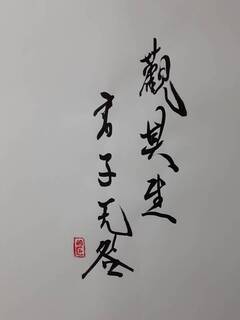 觀其生
君子无咎